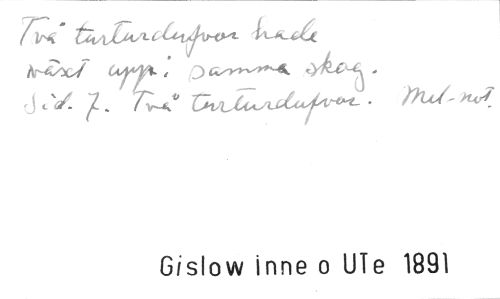 Två turturdufvor hade
växt upp i samma skog.
Sid. 7. Två turturdufvor. Mel-not.
Gislow inne o UTe 1891